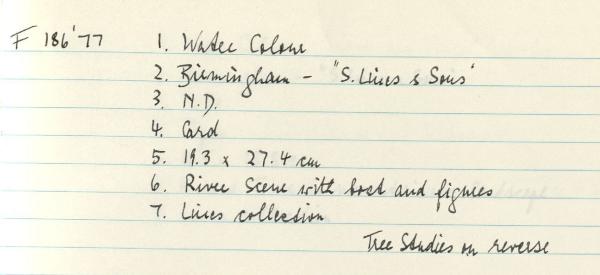 F 186'77 1. Water Colour
2. Birmingham - "S. Lines & Sons"
3. N.D.
4. Card
5. 19.3 x 27.4 cm
6. River Scene with boat and figures
7. Lines collection
Tree Studies on reverse